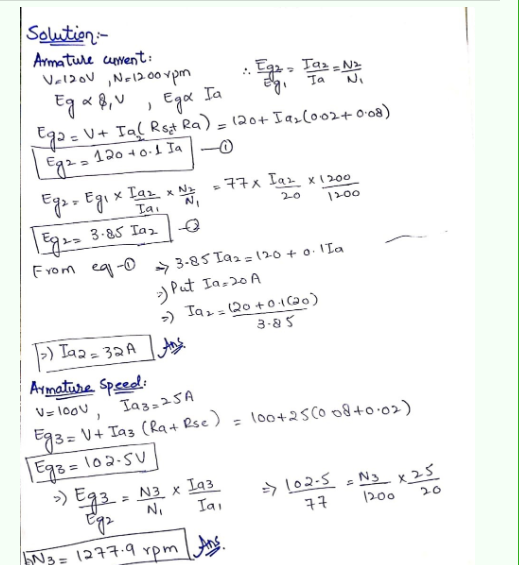 Solution:-
Armature current:
V=120V , N=1200rpm
∴ Eg2/Eg1 = Ia2/Ia = N2/N1
Eg ∝ φ, V , Eg ∝ Ia
Eg2 = V + Ia2(Rse+Ra) = 120 + Ia2(0.02+0.08)
Eg2 = 120 + 0.1 Ia —①
Eg2 = Eg1 × Ia2/Ia1 × N2/N1 = 77 × Ia2/20 × 1200/1200
Eg2 = 3.85 Ia2 —②
From eq-① ⇒ 3.85 Ia2 = 120 + 0.1Ia
⇒) Put Ia=20A
⇒) Ia2 = (20 + 0.1(20)/3.85
⇒) Ia2 = 32A Ans.
Armature Speed:
V=100V , Ia3=25A
Eg3 = V + Ia3 (Ra+Rse) = 100+25(0.08+0.02)
Eg3 = 102.5V
⇒) Eg3/Eg2 = N3/N1 × Ia3/Ia1 ⇒ 102.5/77 = N3/1200 × 25/20
N3 = 1277.9 rpm Ans.